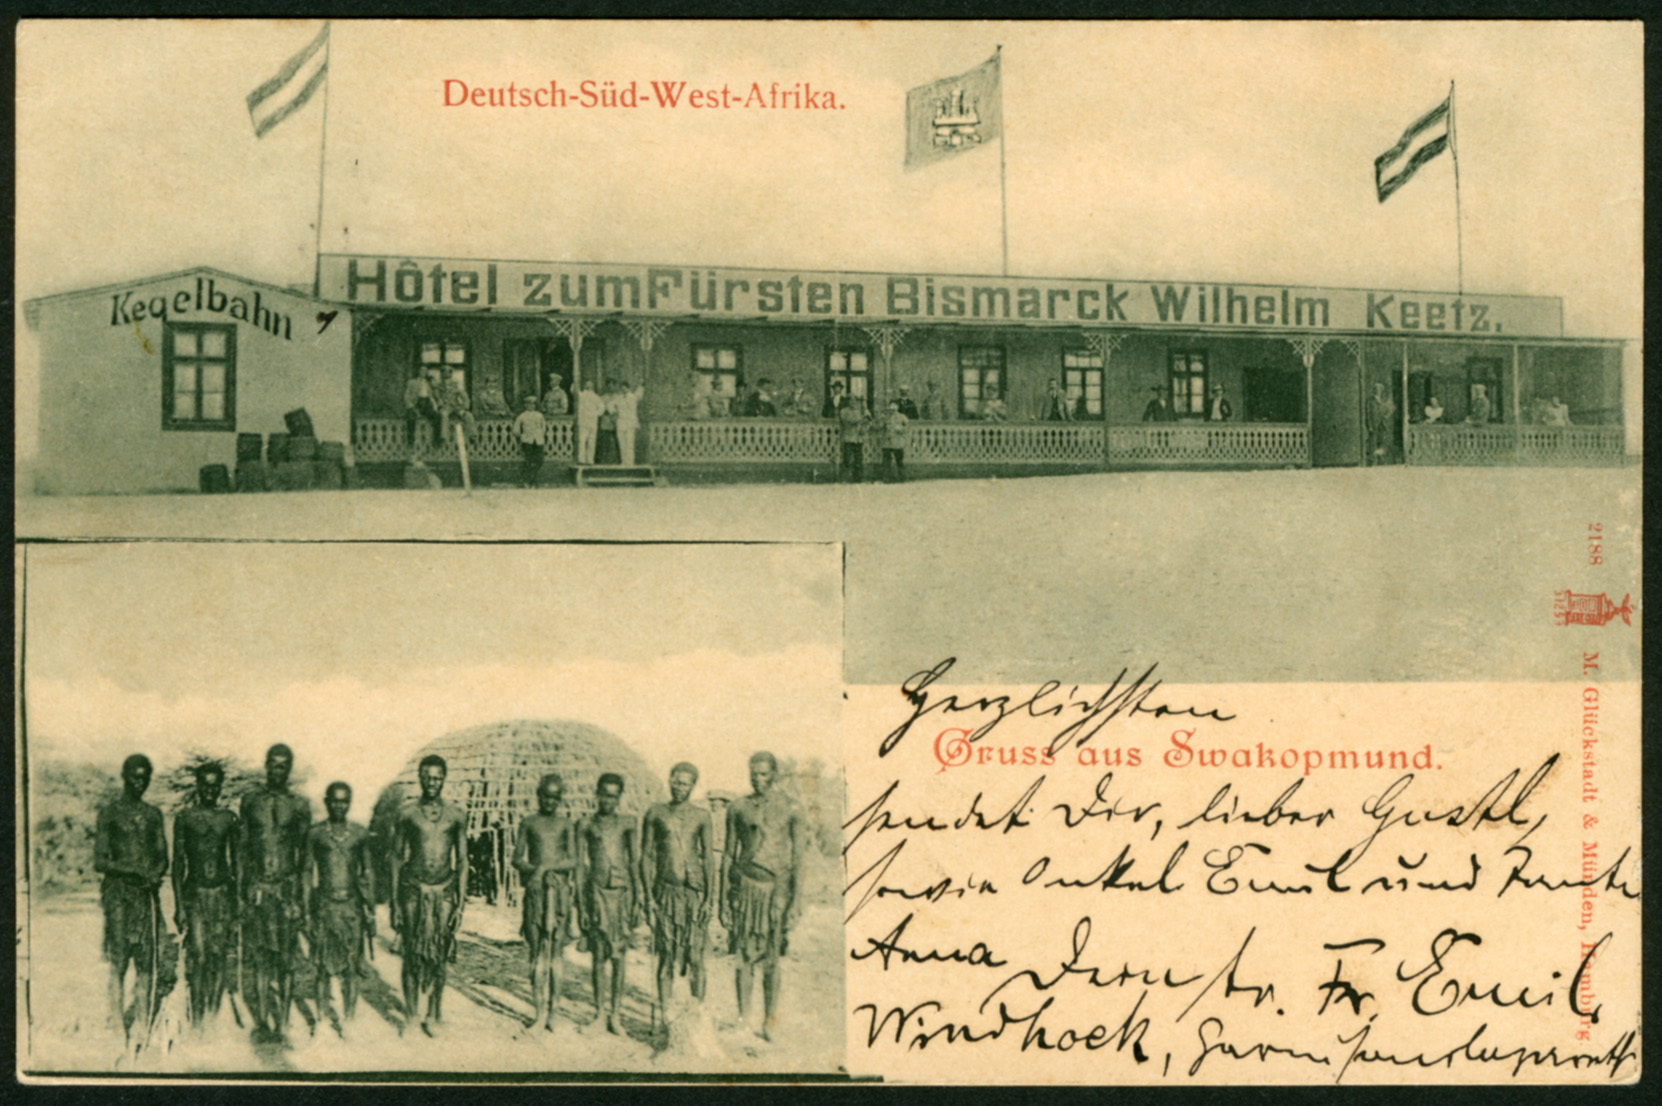 Deutsch-Süd-West-Afrika.
Kegelbahn
Hôtel zum Fürsten Bismarck Wilhelm Keetz.
Herzlichsten
Gruss aus Swakopmund.
sendet Dir, lieber Gustl,
sowie Onkel Emil und Tante
Anna Dein tr. Fr. Emil.
Windhoek,
2188
M. Glückstadt & Münden, Hamburg